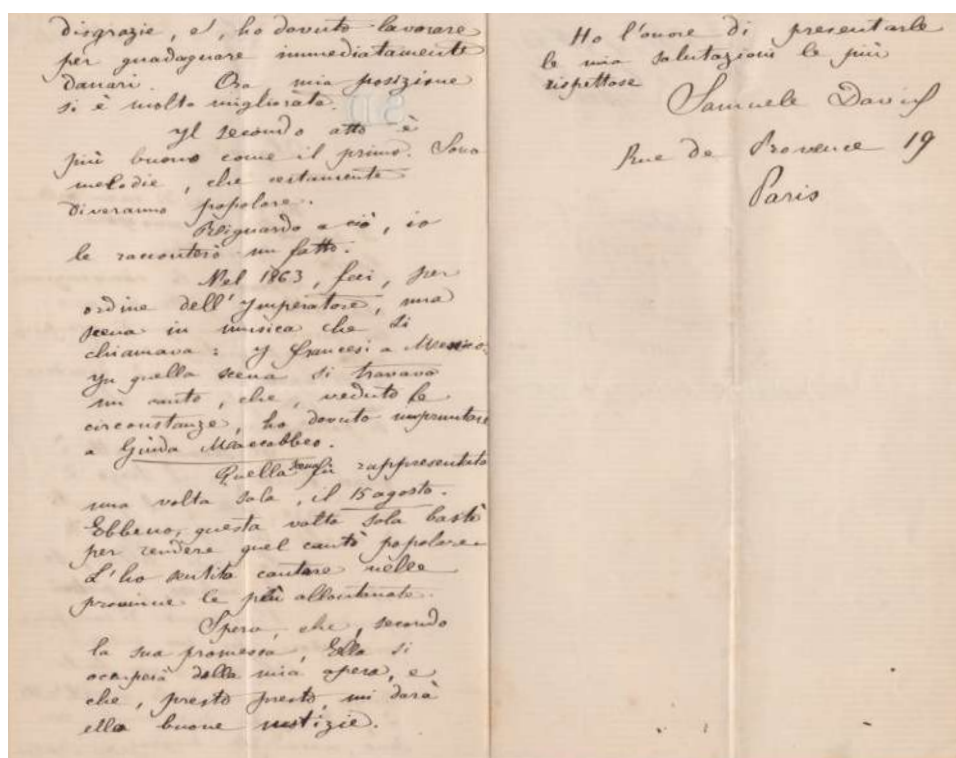 disgrazie, e', ho dovuto lavorare
per guadagnare immediatamente
danari. Ora mia posizione
si è molto migliorata.
Yl secondo atto è
più buono come il primo. Sono
melodie, che certamente
diveranno popolare.
Reiguardo a ciò, io
le racconterò un fatto.
Nel 1863, feci, per
ordine dell'Ymperatore, una
scena in musica che si
chiamava: Y francesi a Messico.
Yn quella scena si trovava
un canto, che, veduto le
circonstanze, ho dovuto impruntare
a Giuda Maccabbeo.
Quella scena fù rappresentata
una volta sola, il 15 agosto.
Ebbeno, questa volta sola bastò
per rendere quel cantò popolare.
L'ho sentito cantare nelle
provincie le più allontanate.
Spero, che, secondo
la sua promessa, Ella si
occuperà della mia opera, e
che, presto presto, mi darà
ella buone notizie.
Ho l'onore di presentarle
le mia salutazioni le più
rispettose
Samuele David
Rue de Provence 19
Paris